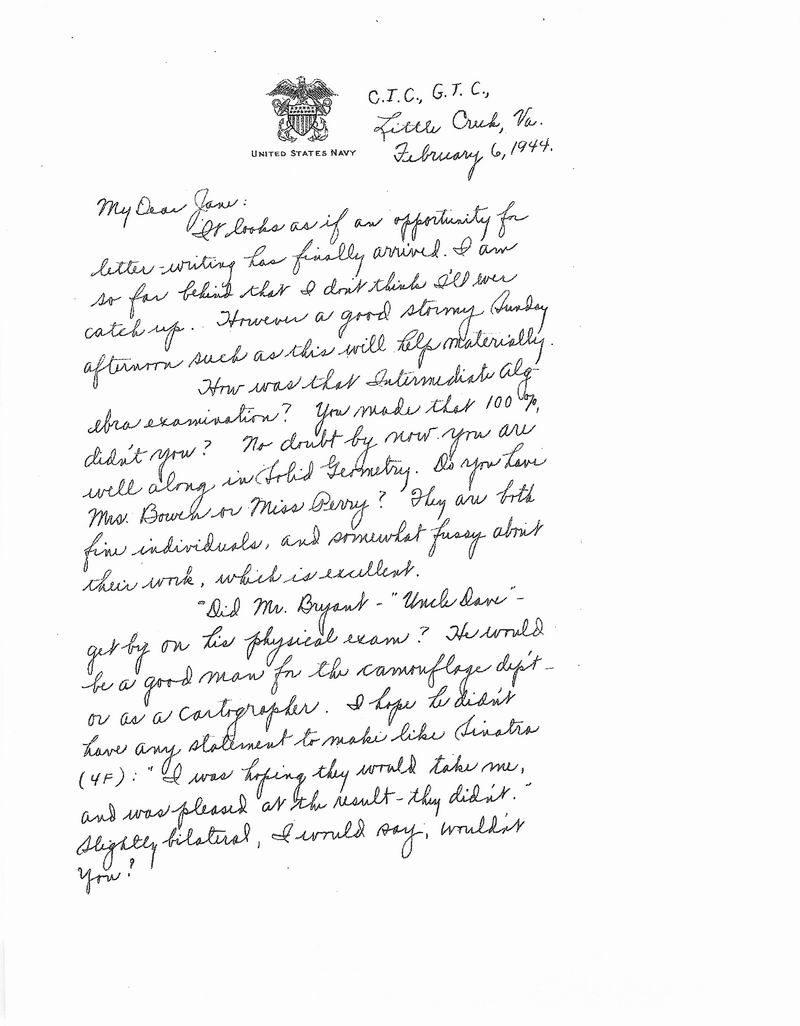 C.I.C., G.T.C.,
Little Creek, Va.
February 6, 1944.
UNITED STATES NAVY
My Dear Jane:
It looks as if an opportunity for
letter-writing has finally arrived. I am
so far behind that I don't think I'll ever
catch up. However a good stormy Sunday
afternoon such as this will help materially.
How was that Intermediate Alg-
ebra examination? You made that 100%,
didn't you? No doubt by now you are
well along in Solid Geometry. Do you have
Mrs. Bowen or Miss Perry? They are both
fine individuals, and somewhat fussy about
their work, which is excellent.
"Did Mr. Bryant - "Uncle Dave" -
get by on his physical exam? He would
be a good man for the camouflage dep't -
or as a cartographer. I hope he didn't
have any statement to make like Sinatra
(4F): "I was hoping they would take me,
and was pleased at the result - they didn't."
Slightly bilateral, I would say, wouldn't
you?